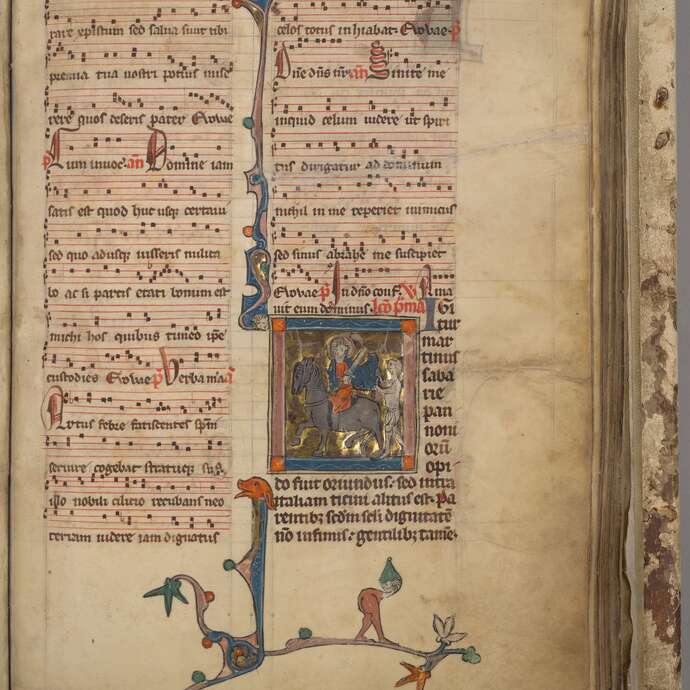 rare xpistum sed salua sunt tibi
premia tua nostri potius mise
rere quos deseris pater Euouae
p̄ Cum inuoc̄. an̄ Domine iam
satis est quod huc usqꝫ certaui
sed quo adusqꝫ iusseris milita
bo ac si parcis etati bonum est
michi hos quibus timeo ipē
custodies Euouae p̄ Verba m̄ a
Artus febre fatiscentes spm̄
seruire cogebat stratusqꝫ suo
illo nobili cilicio recubans neo
teriam uidere iam dignatus
celos totus inhiabat Euouae p̄
Dn̄e dn̄s nr̄. an̄ Sinite me
inquid celum uidere ut spiri
tus dirigatur ad dominum
nichil in me reperiet inimicus
sed sinus abrahe me suscipiet
Euouae p̄ In dn̄o conf. V̄ Ama
uit eum dominus. lc̄o p̄ma
IGi
tur
mar
tinus
saba
rie
pan
noni
orū
opi
do fuit oriundus. sed intra
italiam ticini altus est. pa
rentibꝫ sedm seli dignitatē
nō infimis. gentilibꝫ tamē.